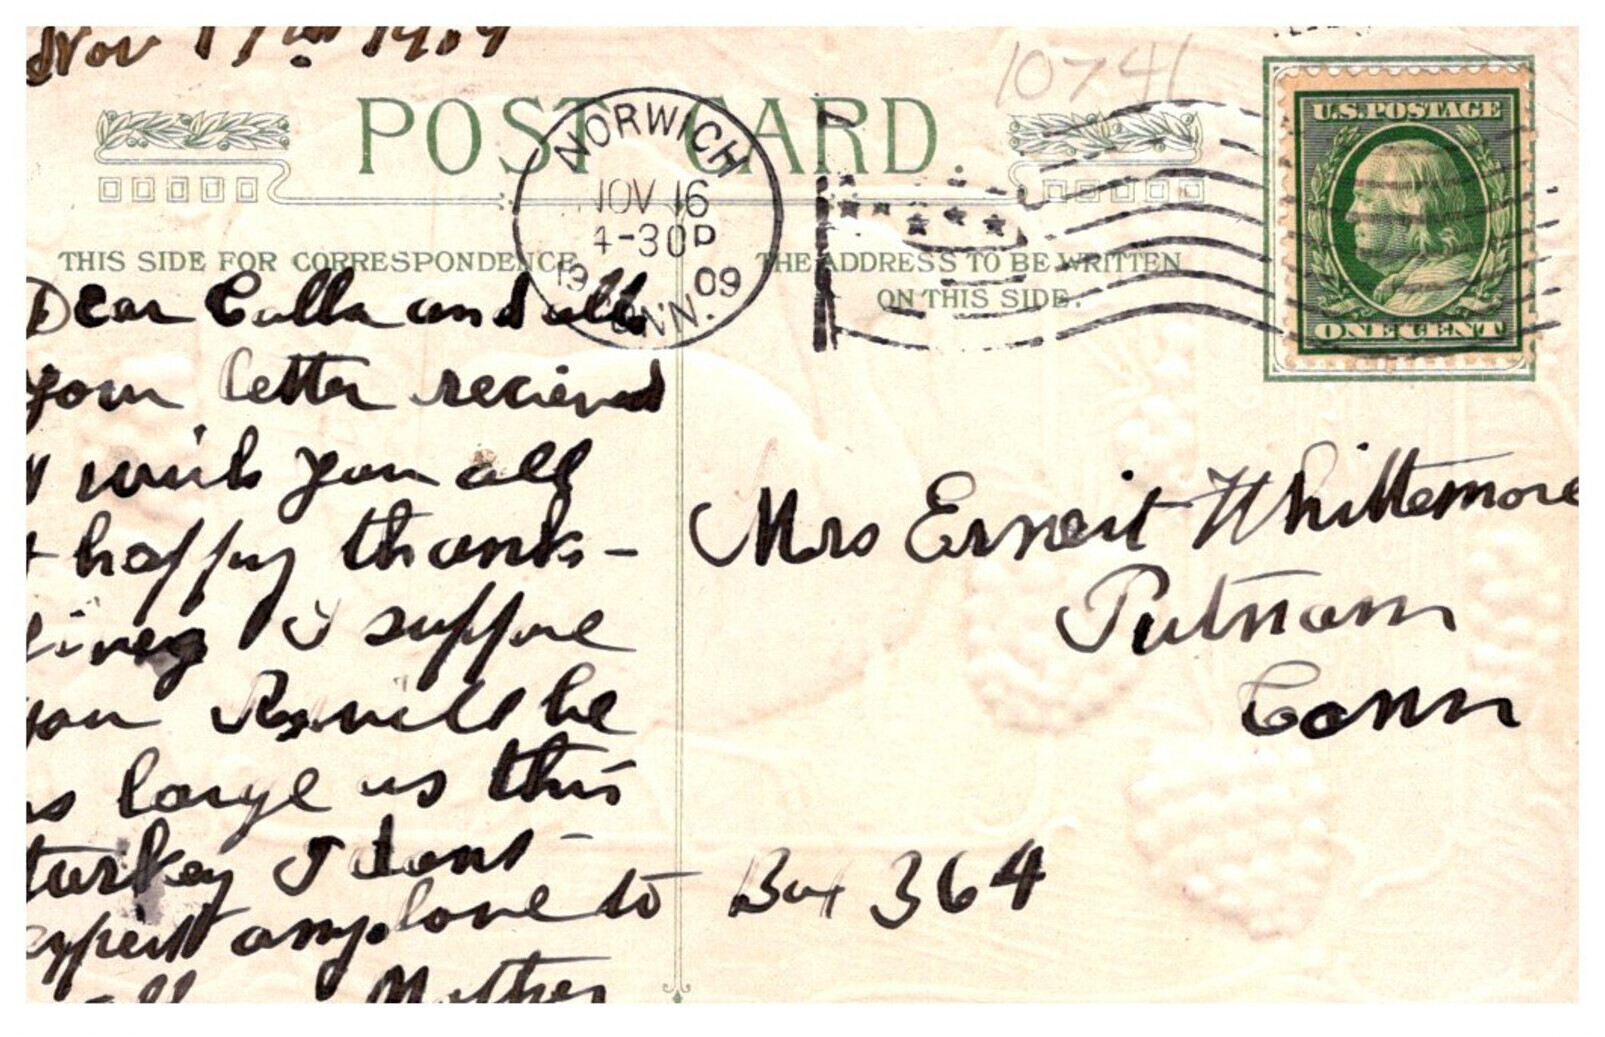 Nov 17th 1909
10741
POST CARD.
NORWICH
NOV 16
4-30P
1909
CONN.
U.S. POSTAGE
ONE CENT
THIS SIDE FOR CORRESPONDENCE
THE ADDRESS TO BE WRITTEN
ON THIS SIDE.
Dear Calla and all
your letter recieved
I wish you all
a happy thanks-
giveng I suppose
you will be
as large as this
turkey I dont
expect any love to
all Mother
Mrs Ernest Whittemore
Putnam
Conn
Box 364